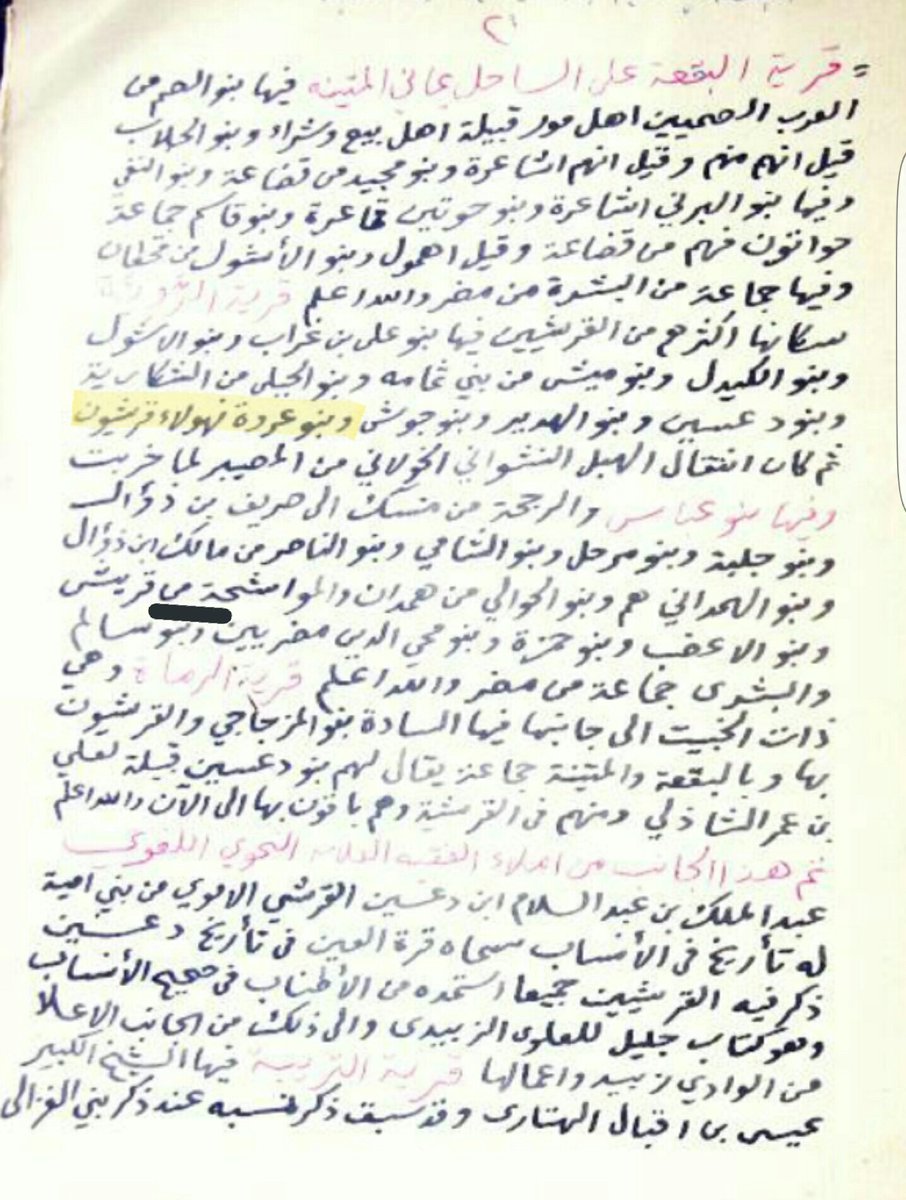 ٢
= قرية البقعة على الساحل يماني المتينه فيها بنو الهم من
العرب الصميين اهل مور قبيلة اهل بيع وشراء وبنو الجلاب
قيل انهم منهم وقيل انهم اشاعرة وبنو مجيد من قضاعة وبنو النقي
وفيها بنو البرني اشاعرة وبنو حوتين وبنو قاسم جماعة
حواتون فهم من قضاعة وقيل اهمول وبنو الأشول من قحطان
وفيها جماعة من البشرة من مضر والله اعلم قرية
سكانها اكثرهم من القريشيين فيها بنو علي بن غراب وبنو الاشول
وبنو الكيدل وبنو ميش من بني ثمامه وبنو الجبلي من
وبنو دعسين وبنو الهدير وبنو جوش وبنو عروة فهولاء قرشيون
ثم كان انتقال الهبل النشواني الخولاني من المصبر لما خربت
وفيها بنو عباس والرجحة من منسك الى صريف بن ذؤال
وبنو جلبة وبنو مرحل وبنو الشامي وبنو الناصر من مالك ابن ذؤال
وبنو الهمداني هم وبنو الحوالي من همدان والمواشحة من قريش
وبنو الاعضب وبنو حمزة وبنو محي الدين مضريين وبنو سالم
والبشرى جماعة من مضر والله اعلم قرية الرماة وهي
ذات الخبيت الى جانبها فيها السادة بنو المزجاجي والقرشيون
بها وبالبقعة والمتينة جماعة يقال لهم بنو دعسين قبيلة لعلي
بن عمر الشاذلي ومنهم في القرشية وهم باقون بها الى الآن والله اعلم
تم هذا الجانب من املاء الفقيه العلامه النحوي اللغوي
عبد الملك بن عبد السلام ابن دعسين القرشي الاموي من بني امية
له تأريخ في الأنساب سماه قرة العين في تأريخ دعسين
ذكر فيه القريشيين جميعا استمده من الأطناب في صحيح الأنساب
وهو كتاب جليل للعلوي الزبيدي والى ذلك من الجانب الاعلا
من الوادي زبيد واعمالها قرية التريبة فيها الشيخ الكبير
عيسى بن اقبال الهتارى وقد سبق ذكر نسبه عند ذكر بني الغزالي